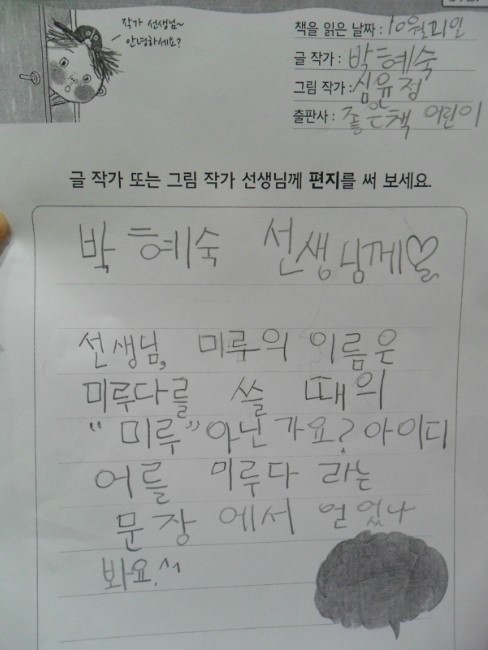 작가 선생님~
안녕하세요?
책을 읽은 날짜 : 10월 21일
글 작가 : 박혜숙
그림 작가 : 심유정
출판사 : 좋은책 어린이
글 작가 또는 그림 작가 선생님께 편지를 써 보세요.
박혜숙 선생님께♡을
선생님, 미루의 이름은
미루다를 쓸 때의
"미루" 아닌가요? 아이디
어를 미루다 라는
문장에서 얻었나
봐요.^^